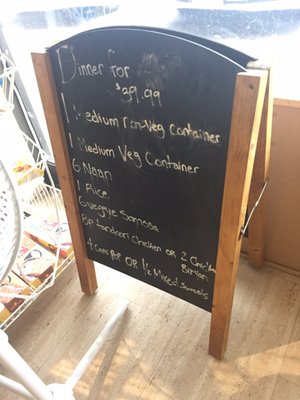 Dinner for
$39.99
1 Medium Non-Veg Container
1 Medium Veg Container
6 Naan
1 Rice
6 veggie Samosa
8p tandoori Chicken OR 2 Chicken
BirYan
4 cans POP OR 1/2 Mixed sweets